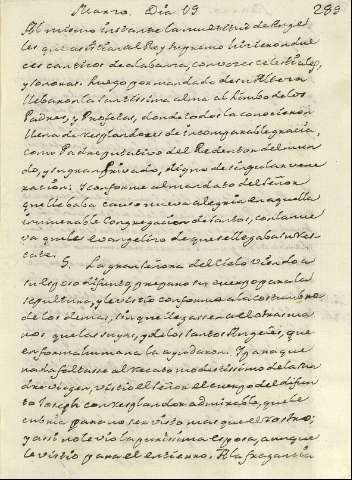 Marzo. Dia 19
233
Al mismo instante la multitud de Ange
les que asistian al Rey supremo hicieron dul
ces canticos de alabanza, con voces celestiales,
y sonoras. Luego por mandado de su Alteza
llebaron la santissima alma al Limbo de los
Padres, y Profetas, donde todos la conocieron
llena de resplandores de incomparable gracia,
como Padre putativo del Redentor del mun
do, y su gran Privado, digno de singular vene
racion. Y conforme al mandato del Señor
que llebaba causo nueva alegria en aquella
inumerable Congregacion de Santos, con la nue
va que les evangelizo de que se llegaba su res
cate.
5. La gran Señora del Cielo viendo a
su Esposo difunto, preparo su cuerpo para la
sepultura, y le vistio conforme a la costumbre
de los demas, sin que llegassen a el otras ma
nos que las suyas, y de los santos Angeles, que
en forma humana la ayudaron. Y para que
nada faltasse al recato modestissimo de la Ma
dre Virgen, vistio el Señor el cuerpo del difun
to Joseph con resplandor admirable, que le
cubria para no ser visto mas que el rostro;
y assi no le vio la purissima esposa, aunque
le vistio para el entierro. A la fragancia